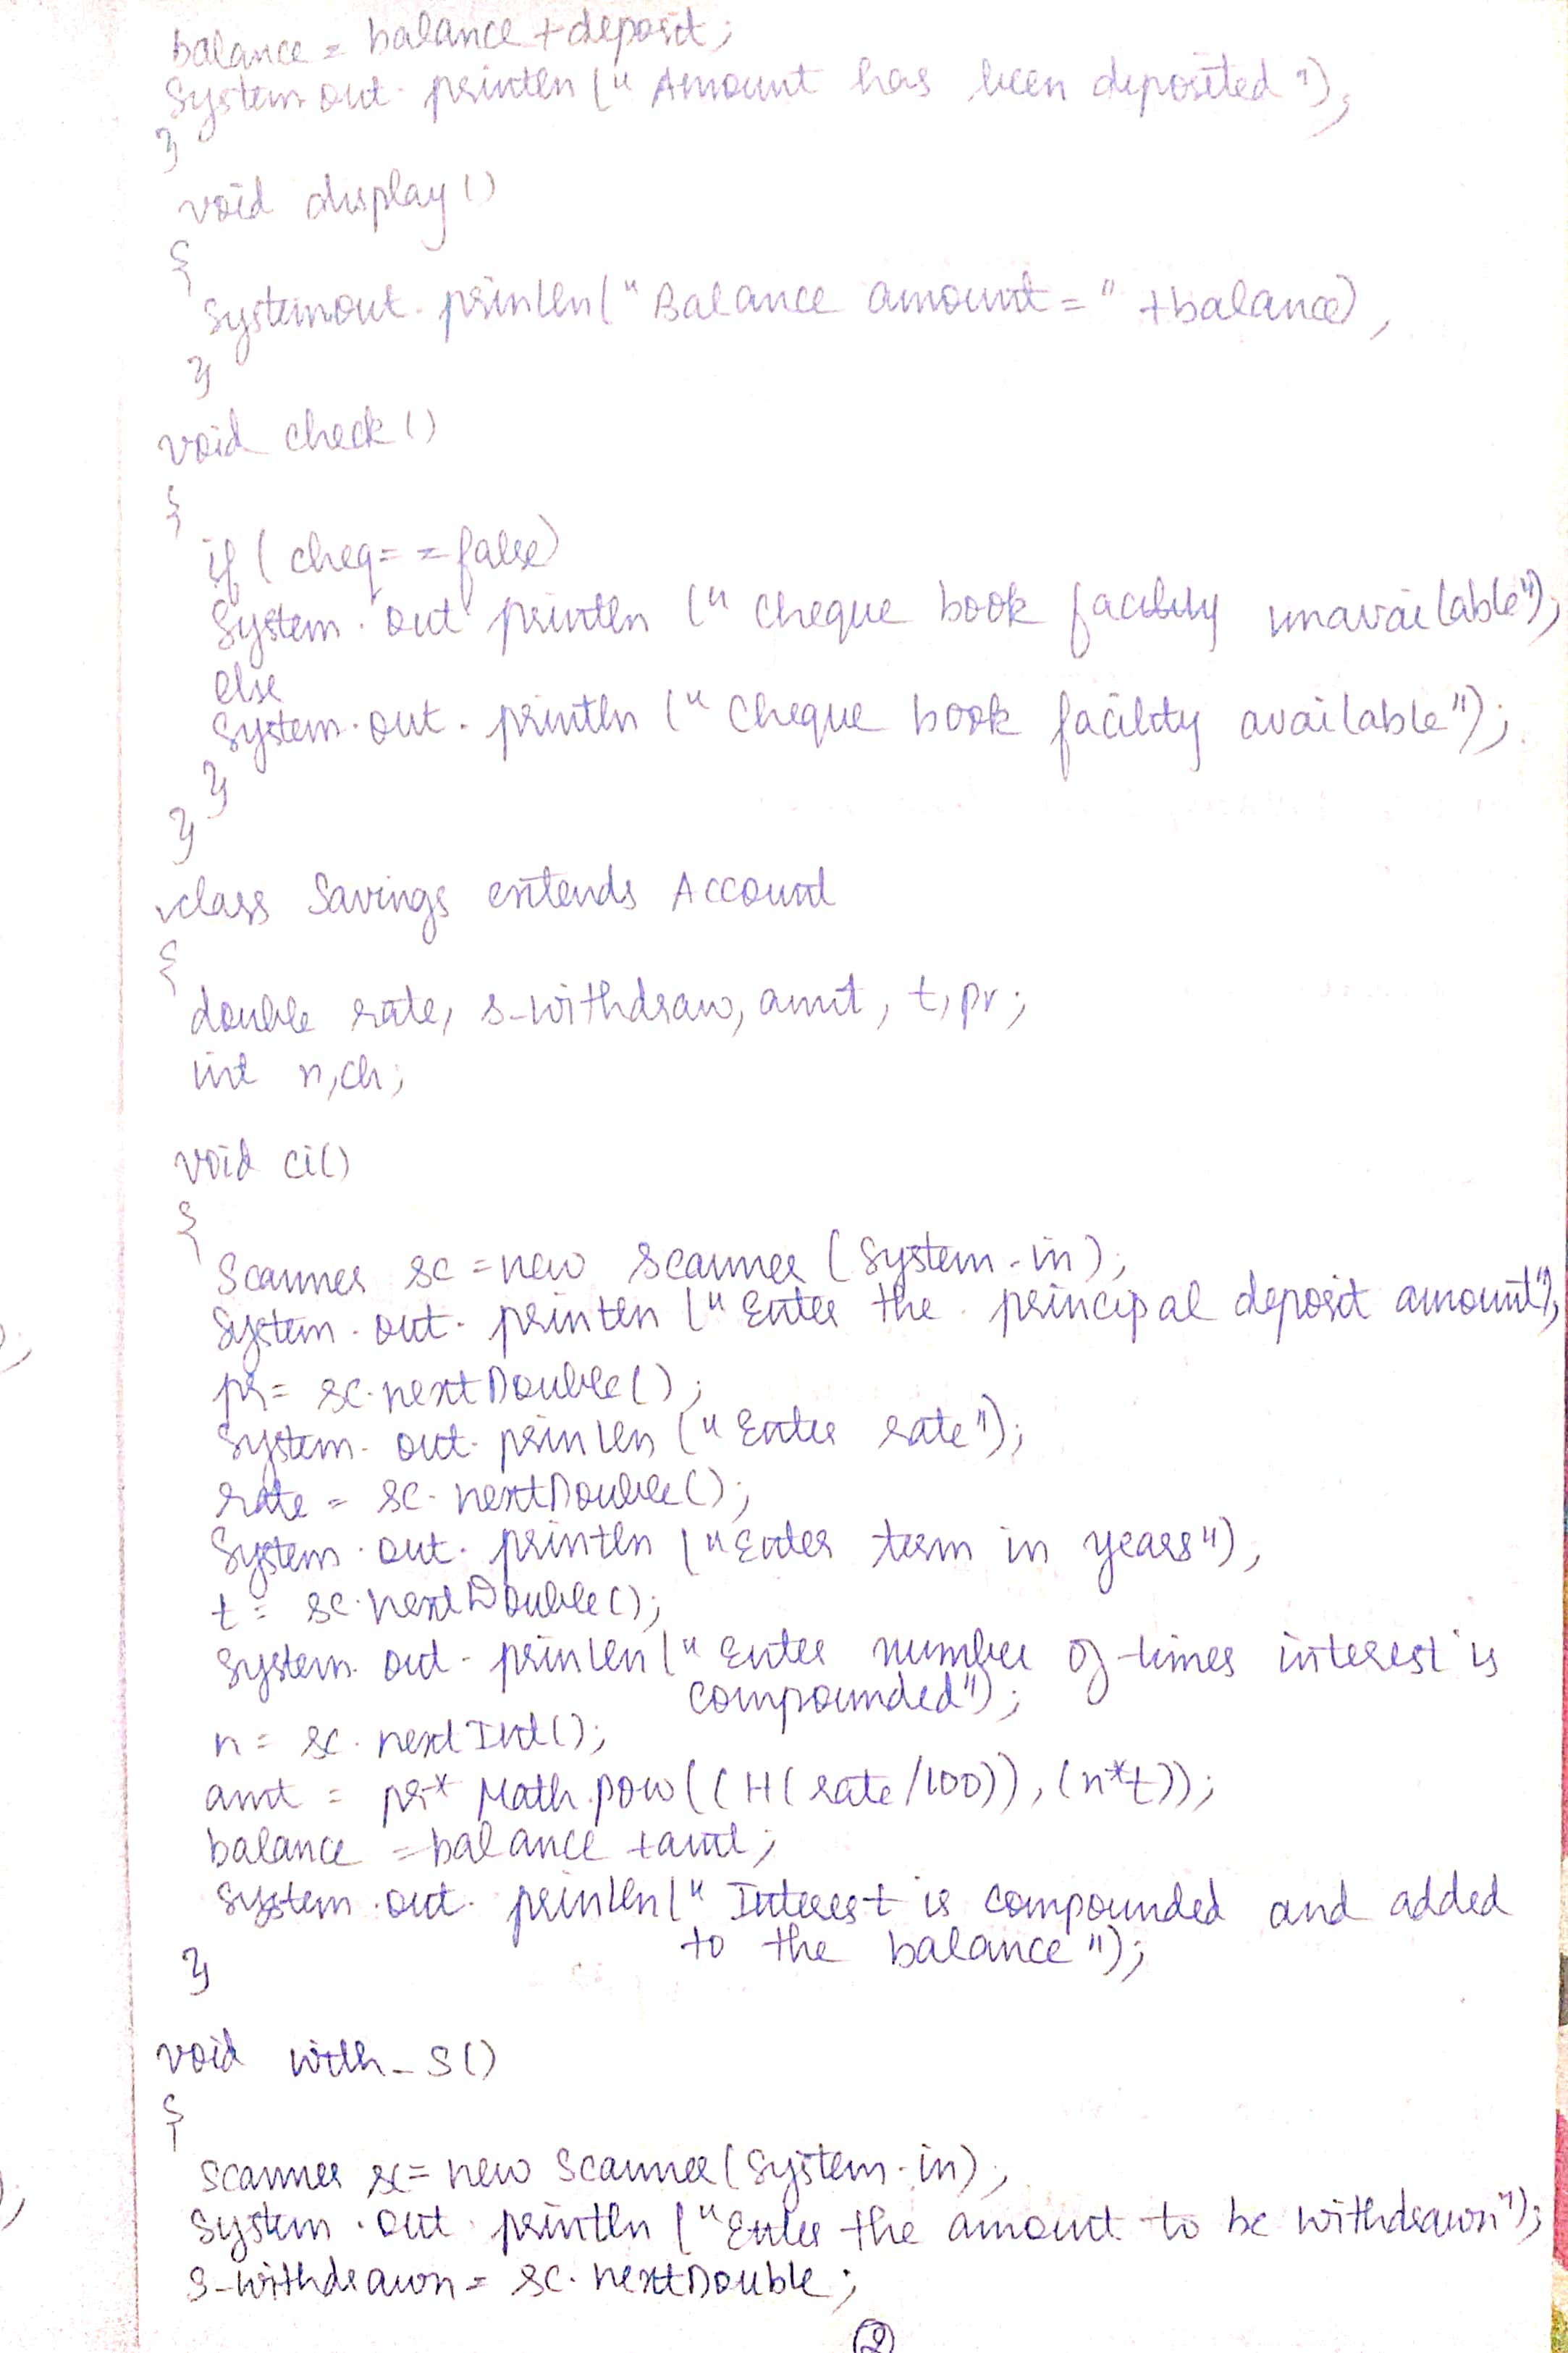 balance = balance + deposit;
System.out.println (" Amount has been deposited ");
}
void display ()
{
System.out.println(" Balance amount = " +balance),
}
void check ()
{
if ( cheq = = false)
System.out println (" cheque book facility unavailable");
else
System.out.println (" Cheque book facility available");
}
}
class Savings extends Account
{
double rate, s-withdraw, amt, t, pr;
int n,ch;
void ci()
{
Scanner sc = new Scanner (System.in);
System.out.println (" Enter the principal deposit amount");
pr = sc.nextDouble();
System.out.println (" Enter rate");
rate = sc.nextDouble();
System.out.println ("Enter term in years"),
t = sc.nextDouble();
System.out.println (" Enter number of times interest is
compounded");
n = sc.nextInt();
amt = pr* Math.pow((1+(rate/100)),(n*t));
balance = balance +amt;
System.out.println(" Interest is compounded and added
to the balance");
}
void with_s()
{
Scanner sc = new Scanner (System.in);
System.out.println ("Enter the amount to be withdrawn");
s-withdrawn = sc.nextDouble;
2